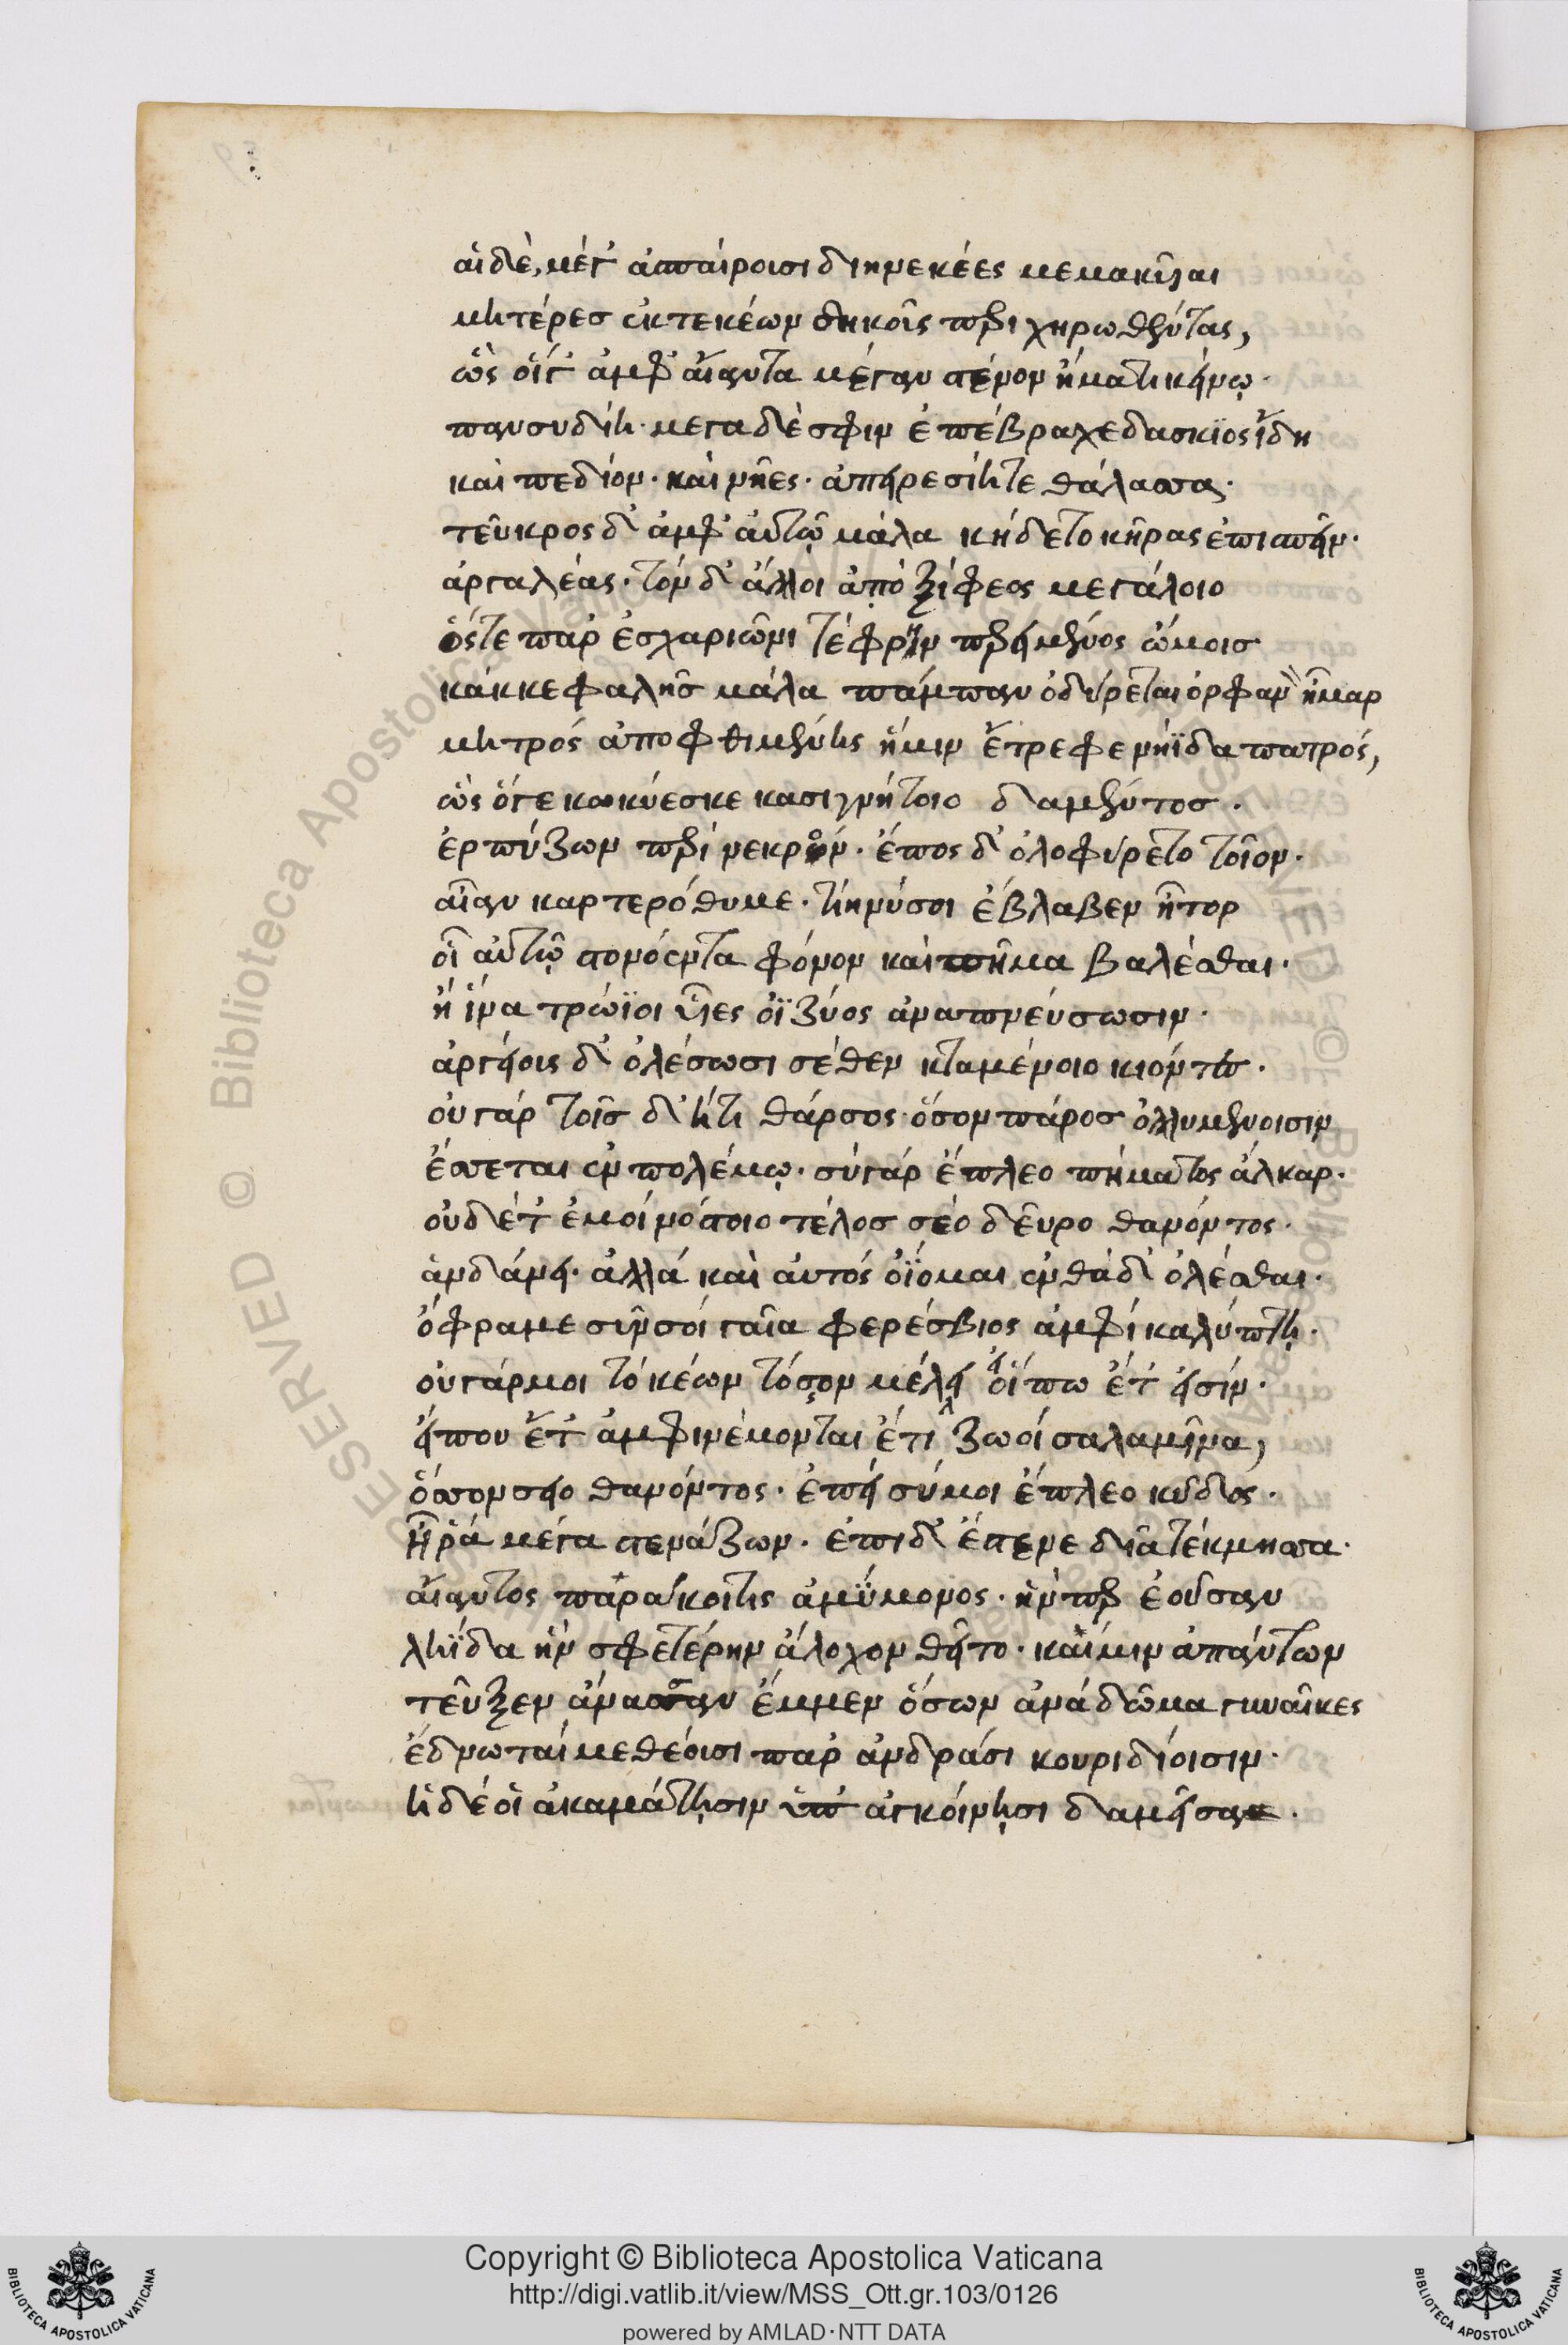 αἱ δὲ, μέγ' ἀσπαίρουσι διηνεκέες μεμακυῖαι
μητέρες ἐκ τεκέων σηκοῖς περι χηρωθέντας,
ὣς οἵγ' ἀμφ' αἴαντα μέγαν στένον ἤματι κείνῳ·
πανσυδίη· μεγα δέ σφιν ἐπέβραχε δάσκϊος ἴδη
καὶ πεδίον· καὶ νῆες· ἀπειρεσίη τε θάλασσα·
τεῦκρος δ' ἀμφ' αὐτῷ μάλα κήδετο κῆρας ἐπισπεῖν·
ἀργαλέας· τὸν δ' ἄλλοι ἀπὸ ξίφεος μεγάλοιο
ὅς τε παρ' ἐσχαριῶνι τέφρην περιειμένος ὤμοις
κὰκ κεφαλῆς μάλα πάμπαν ὀδύρεται ὀρφανὸν ἦμαρ
μητρός ἀποφθιμένης ἥ μιν ἔτρεφε νηΐδα πατρός,
ὣς ὅγε κωκύεσκε κασιγνήτοιο δαμέντος·
ἑρπύζων περὶ νεκρόν· ἔπος δ' ὀλοφύρετο τοῖον·
αἶαν καρτερόθυμε· τίη νύ σοι ἔβλαβεν ἦτορ
οἷ αὐτῷ στονόεντα φόνον καὶ πῆμα βαλέσθαι·
ἢ ἵνα τρώϊοι υἷες ὀϊζύος ἀναπνεύσωσιν·
ἀργείοις δ' ὀλέσωσι σέθεν κταμένοιο κιόντες·
οὐ γὰρ τοῖς δ' ἔτι θάρσος ὅσον πάρος ὀλλυμένοισιν
ἕσπεται ἐν πολέμῳ· σὺ γὰρ ἔπλεο πήματος ἄλκαρ·
οὐδέ τ' ἐμοὶ νόστοιο τέλος σέο δεῦρο θανόντος·
ἁνδάνει· ἀλλὰ καὶ αὐτὸς ὀΐομαι ἐνθάδ' ὀλέσθαι·
ὄφρα με σὺν σοὶ γαῖα φερέσβιος ἀμφικαλύπτῃ·
οὐ γάρ μοι τοκέων τόσσον μέλει εἴ πω ἔτ' εἰσίν·
εἴ που ἔτ' ἀμφινέμονται ἔτι ζωοὶ σαλαμῖνα,
ὅσσον σεῖο θανόντος· ἐπεὶ σύ μοι ἔπλεο κῦδος·
ἦ ῥα μέγα στενάζων· ἐπι δ' ἔστενε δῖα τέκμησσα·
αἴαντος παράκοιτις ἀμύμονος· ἥν περ ἐοῦσαν
ληΐδα ἣν σφετέρην ἄλοχον θεῖτο· καί μιν ἁπάντων
τεῦξεν ἄνασσαν ἔμμεν ὅσων ἀνὰ δῶμα γυναῖκες
ἕδνωταί με θέοισι παρ' ἀνδράσι κουριδίοισιν·
ἡ δέ οἱ ἀκαμάτῃσιν ὑπ' ἀγκοίνῃσι δαμεῖσα·
Copyright © Biblioteca Apostolica Vaticana
http://digi.vatlib.it/view/MSS_Ott.gr.103/0126
powered by AMLAD·NTT DATA